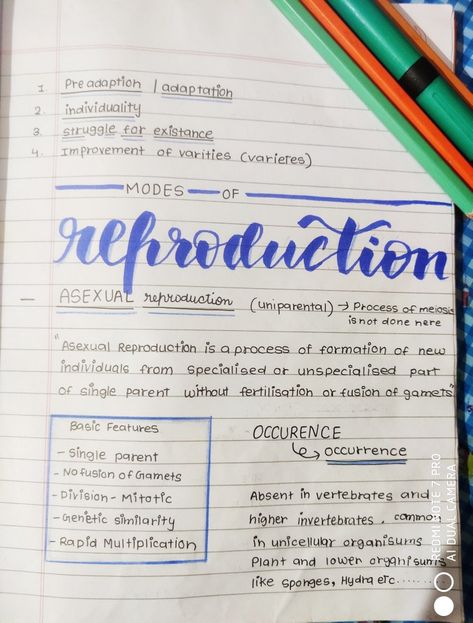 1. Pre adaption / adaptation
2. individuality
3. struggle for existance
4. Improvement of varities (varieres)
MODES OF
reproduction
— ASEXUAL reproduction (uniparental) → Process of meiosis
is not done here
"Asexual Reproduction is a process of formation of new
individuals from specialised or unspecialised part
of single parent without fertilisation or fusion of gamets"
Basic Features
- Single parent
- No fusion of Gamets
- Division - Mitotic
- Genetic similarity
- Rapid Multiplication
OCCURENCE
↳ occurrence
Absent in vertebrates and
higher invertebrates. common
in unicellular organisums
Plant and lower organisums
like sponges, Hydra etc........
REDMI NOTE 7 PRO
AI DUAL CAMERA